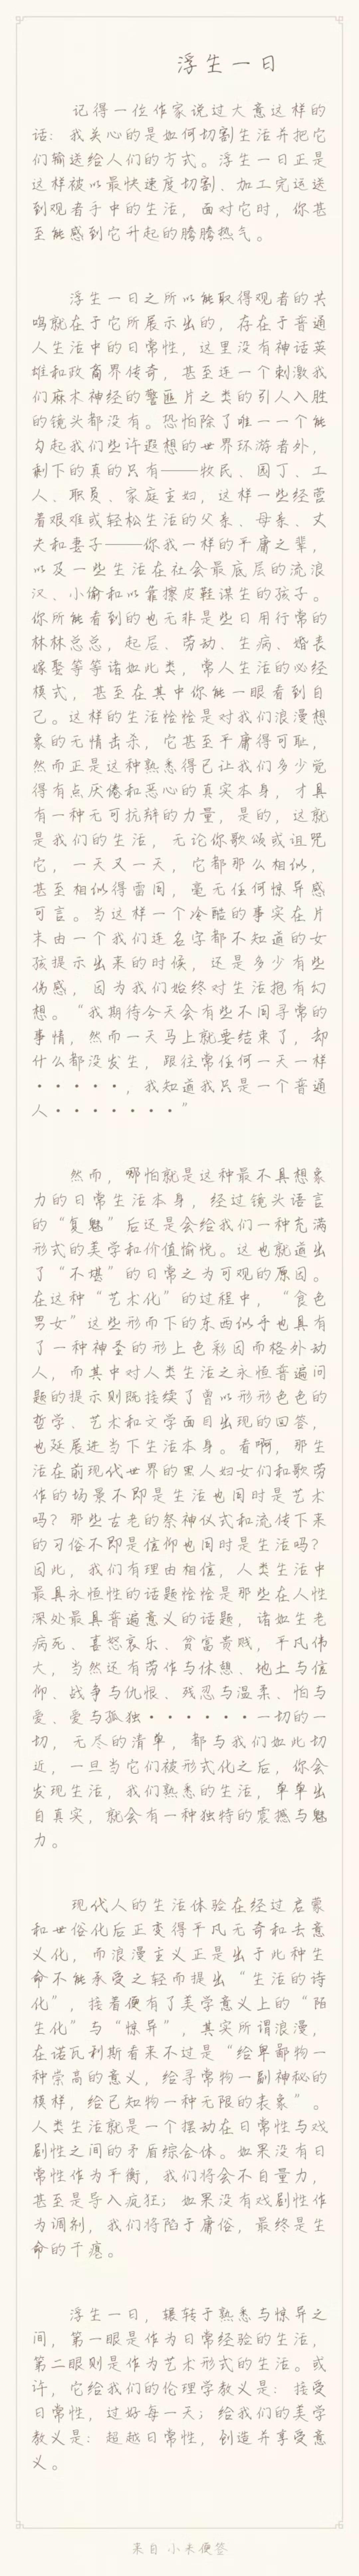 浮生一日
记得一位作家说过大意这样的
话：我关心的是如何切割生活并把它
们输送给人们的方式。浮生一日正是
这样被以最快速度切割、加工完运送
到观者手中的生活，面对它时，你甚
至能感到它升起的腾腾热气。
浮生一日之所以能取得观者的共
鸣就在于它所展示出的，存在于普通
人生活中的日常性，这里没有神话英
雄和政商界传奇，甚至连一个刺激我
们麻木神经的警匪片之类的引人入胜
的镜头都没有。恐怕除了唯一一个能
勾起我们些许遐想的世界环游者外，
剩下的真的只有——牧民、园丁、工
人、职员、家庭主妇，这样一些经营
着艰难或轻松生活的父亲、母亲、丈
夫和妻子——你我一样的平庸之辈，
以及一些生活在社会最底层的流浪
汉、小偷和以靠擦皮鞋谋生的孩子。
你所能看到的也无非是些日用行常的
林林总总，起居、劳动、生病、婚丧
嫁娶等等诸如此类，常人生活的必经
模式，甚至在其中你能一眼看到自
己。这样的生活恰恰是对我们浪漫想
象的无情击杀，它甚至平庸得可耻，
然而正是这种熟悉得已让我们多少觉
得有点厌倦和恶心的真实本身，才具
有一种无可抗辩的力量，是的，这就
是我们的生活，无论你歌颂或诅咒
它，一天又一天，它都那么相似，
甚至相似得雷同，毫无任何惊异感
可言。当这样一个冷酷的事实在片
末由一个我们连名字都不知道的女
孩提示出来的时候，还是多少有些
伤感，因为我们始终对生活抱有幻
想。“我期待今天会有些不同寻常的
事情，然而一天马上就要结束了，却
什么都没发生，跟往常任何一天一样
·····，我知道我只是一个普通
人·······”
然而，哪怕就是这种最不具想象
力的日常生活本身，经过镜头语言
的“复魅”后还是会给我们一种充满
形式的美学和价值愉悦。这也就道出
了“不堪”的日常之为可观的原因。
在这种“艺术化”的过程中，“食色
男女”这些形而下的东西似乎也具有
了一种神圣的形上色彩因而格外动
人，而其中对人类生活之永恒普遍问
题的提示则既接续了曾以形形色色的
哲学、艺术和文学面目出现的回答，
也延展进当下生活本身。看啊，那生
活在前现代世界的黑人妇女们和歌劳
作的场景不即是生活也同时是艺术
吗？那些古老的祭神仪式和流传下来
的习俗不即是信仰也同时是生活吗？
因此，我们有理由相信，人类生活中
最具永恒性的话题恰恰是那些在人性
深处最具普遍意义的话题，诸如生老
病死、喜怒哀乐、贫富贵贱，平凡伟
大，当然还有劳作与休憩、地土与信
仰、战争与仇恨、残忍与温柔、怕与
爱、爱与孤独······一切的一
切，无尽的清单，都与我们如此切
近，一旦当它们被形式化之后，你会
发现生活，我们熟悉的生活，单单出
自真实，就会有一种独特的震撼与魅
力。
现代人的生活体验在经过启蒙
和世俗化后正变得平凡无奇和去意
义化，而浪漫主义正是出于此种生
命不能承受之轻而提出“生活的诗
化”，接着便有了美学意义上的“陌
生化”与“惊异”，其实所谓浪漫，
在诺瓦利斯看来不过是“给卑鄙物一
种崇高的意义，给寻常物一副神秘的
模样，给已知物一种无限的表象”。
人类生活就是一个摆动在日常性与戏
剧性之间的矛盾综合体。如果没有日
常性作为平衡，我们将会不自量力，
甚至是导入疯狂；如果没有戏剧性作
为调剂，我们将陷于庸俗，最终是生
命的干瘪。
浮生一日，辗转于熟悉与惊异之
间，第一眼是作为日常经验的生活，
第二眼则是作为艺术形式的生活。或
许，它给我们的伦理学教义是：接受
日常性，过好每一天；给我们的美学
教义是：超越日常性，创造并享受意
义。
来自 小米便签